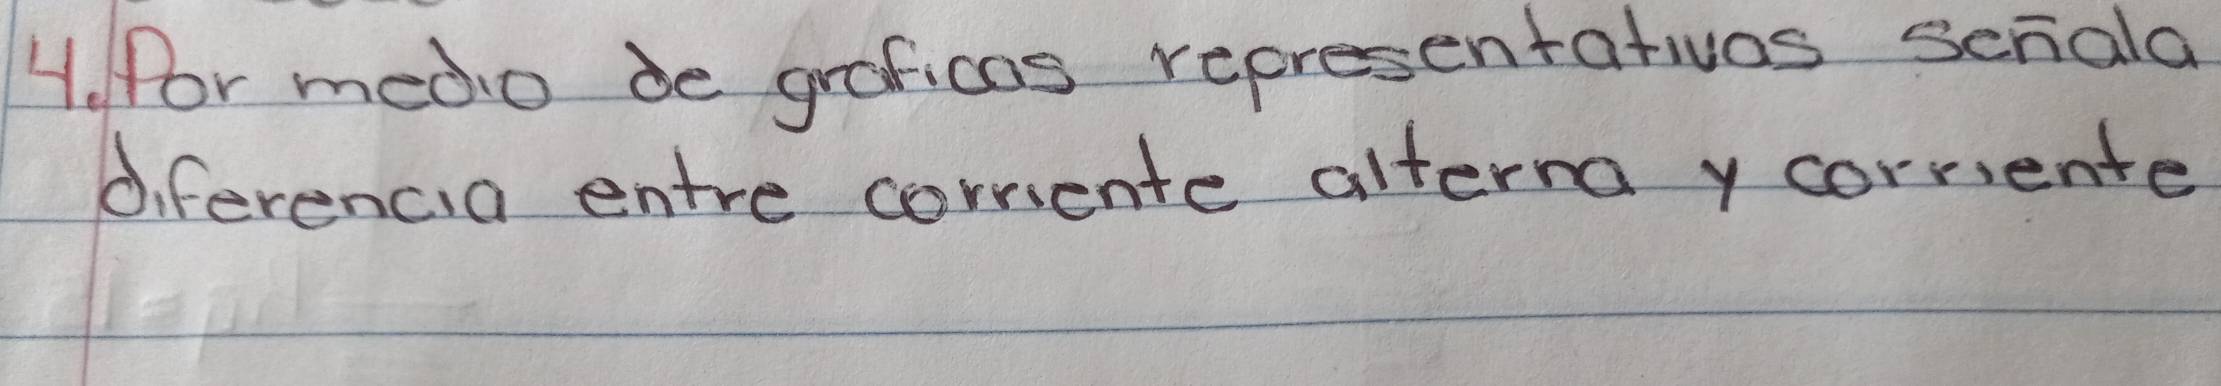 4. Por medio de graficas representativas señala
diferencia entre corriente alterna y corriente